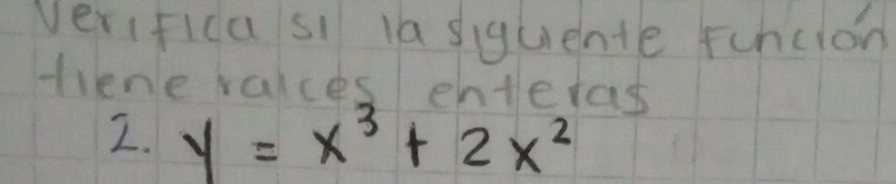 Verifica si la siguiente función
tiene raices enteras
2. y = x³ + 2x²